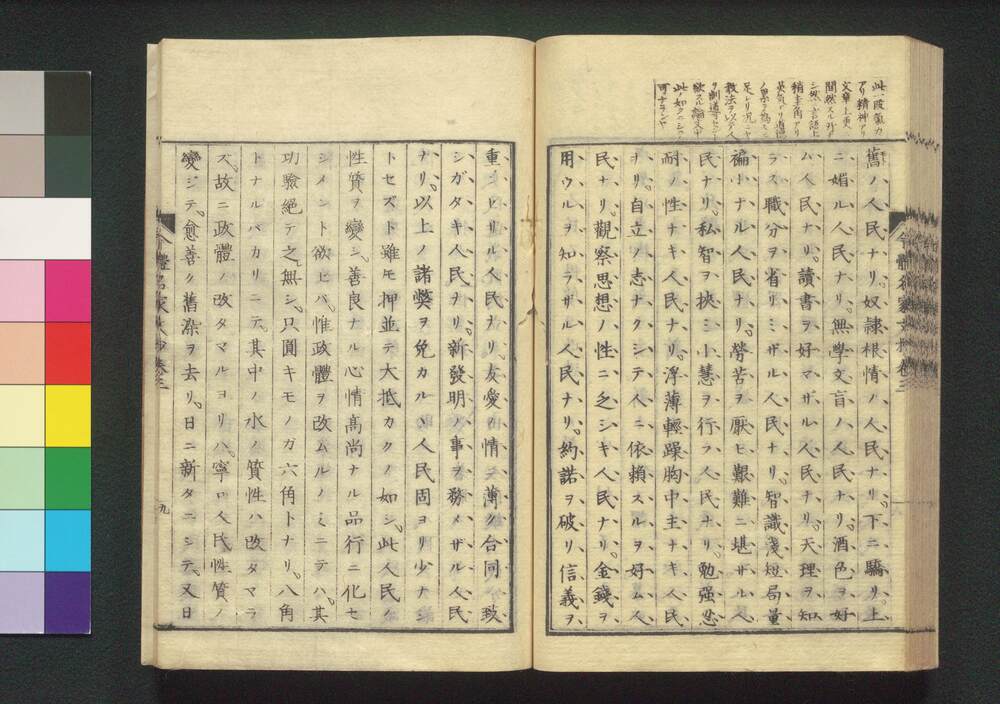 此一段氣力
アリ精神アリ
文章上更ニ
間然スル所ナ
シ然
精
英氣アリ
足レリ況ニヤ
教法ヲ以テ人
ヲ制導セント
欲スル論文中
此ノ如クニシテ
可ナランヤ
舊ノ人民ナリ。奴隷根情ノ人民ナリ。下ニ驕リ上
ニ媚ル人民ナリ。無學文盲ノ人民ナリ。酒色ヲ好
ム人民ナリ。讀書ヲ好マザル人民ナリ。天理ヲ知
ラス職分ヲ省リミザル人民ナリ。智識淺短局量
褊小ナル人民ナリ。勞苦ヲ厭ヒ艱難ニ堪ザル人
民ナリ。私智ヲ挾ミ小慧ヲ行フ人民ナリ。勉强忍
耐ノ性ナキ人民ナリ。浮薄輕躁胸中主ナキ人民
ナリ。自立ノ志ナクシテ人ニ依賴スルヲ好ム人
民ナリ。觀察思想ノ性ニ乏シキ人民ナリ。金錢ヲ
用ウルヲ知ラザル人民ナリ。約諾ヲ破リ信義ヲ
今體名家文抄 卷三
重ンセザル人民ナリ。友愛ノ情ニ薄ク合同一致
シガタキ人民ナリ。新發明ノ事ヲ務メザル人民
ナリ。以上ノ諸弊ヲ免カルヽ人民固ヨリ少ナシ
トセズト雖モ押並テ大抵カクノ如シ。此人民ノ
性質ヲ變シ。善良ナル心情高尚ナル品行ニ化セ
シメント欲セバ。惟政體ヲ改ムルノミニテハ。其
功驗絕テ之無シ。只圓キモノガ六角トナリ。八角
トナルバカリニテ。其中ノ水ノ質性ハ改タマラ
ズ。故ニ政體ノ改タマルヨリハ。寧ロ人民性質ノ
變シテ。愈善ク舊染ヲ去リ。日ニ新タニシテ。又日
今體名家文抄 卷三
九